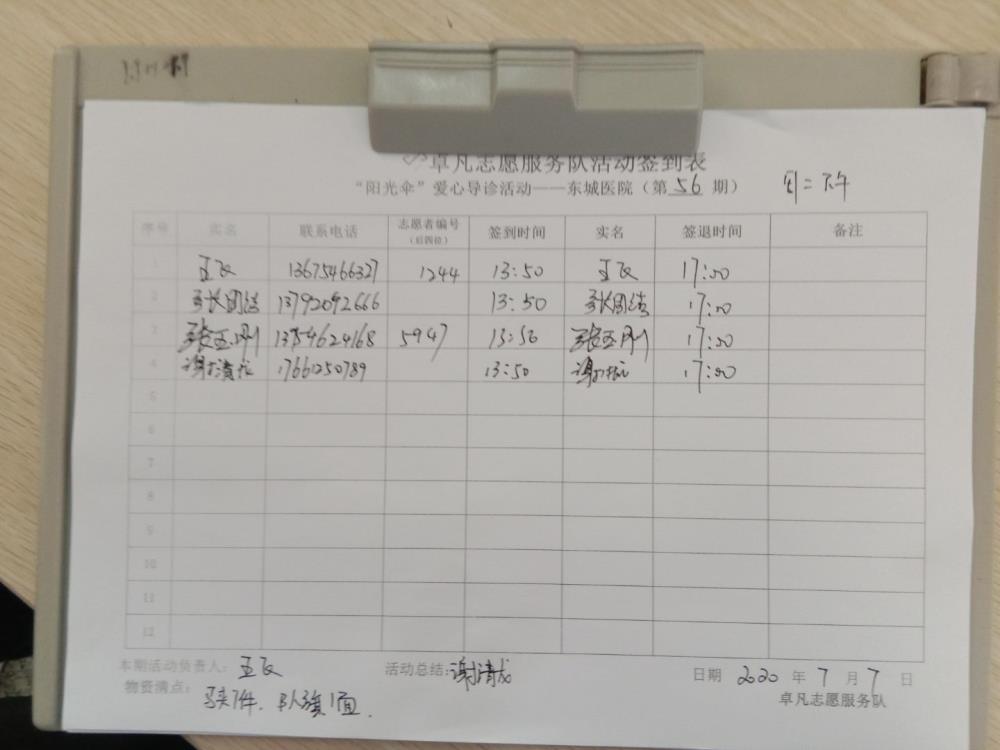 卓凡志愿服务队活动签到表
“阳光伞”爱心导诊活动——东城医院（第 56 期） 周二下午
序号 实名 联系电话 志愿者编号（后四位） 签到时间 实名 签退时间 备注
1 王飞 13675466327 1244 13:50 王飞 17:00
2 张国洁 13792092666 13:50 张国洁 17:00
3 张玉刚 13754624168 5947 13:50 张玉刚 17:00
4 谢清龙 17661250789 13:50 17:00
5
6
7
8
9
10
11
12
本期活动负责人： 王飞 活动总结: 谢清龙 日期 2020 年 7 月 7 日
物资清点： 马夹7件、队旗1面.
卓凡志愿服务队